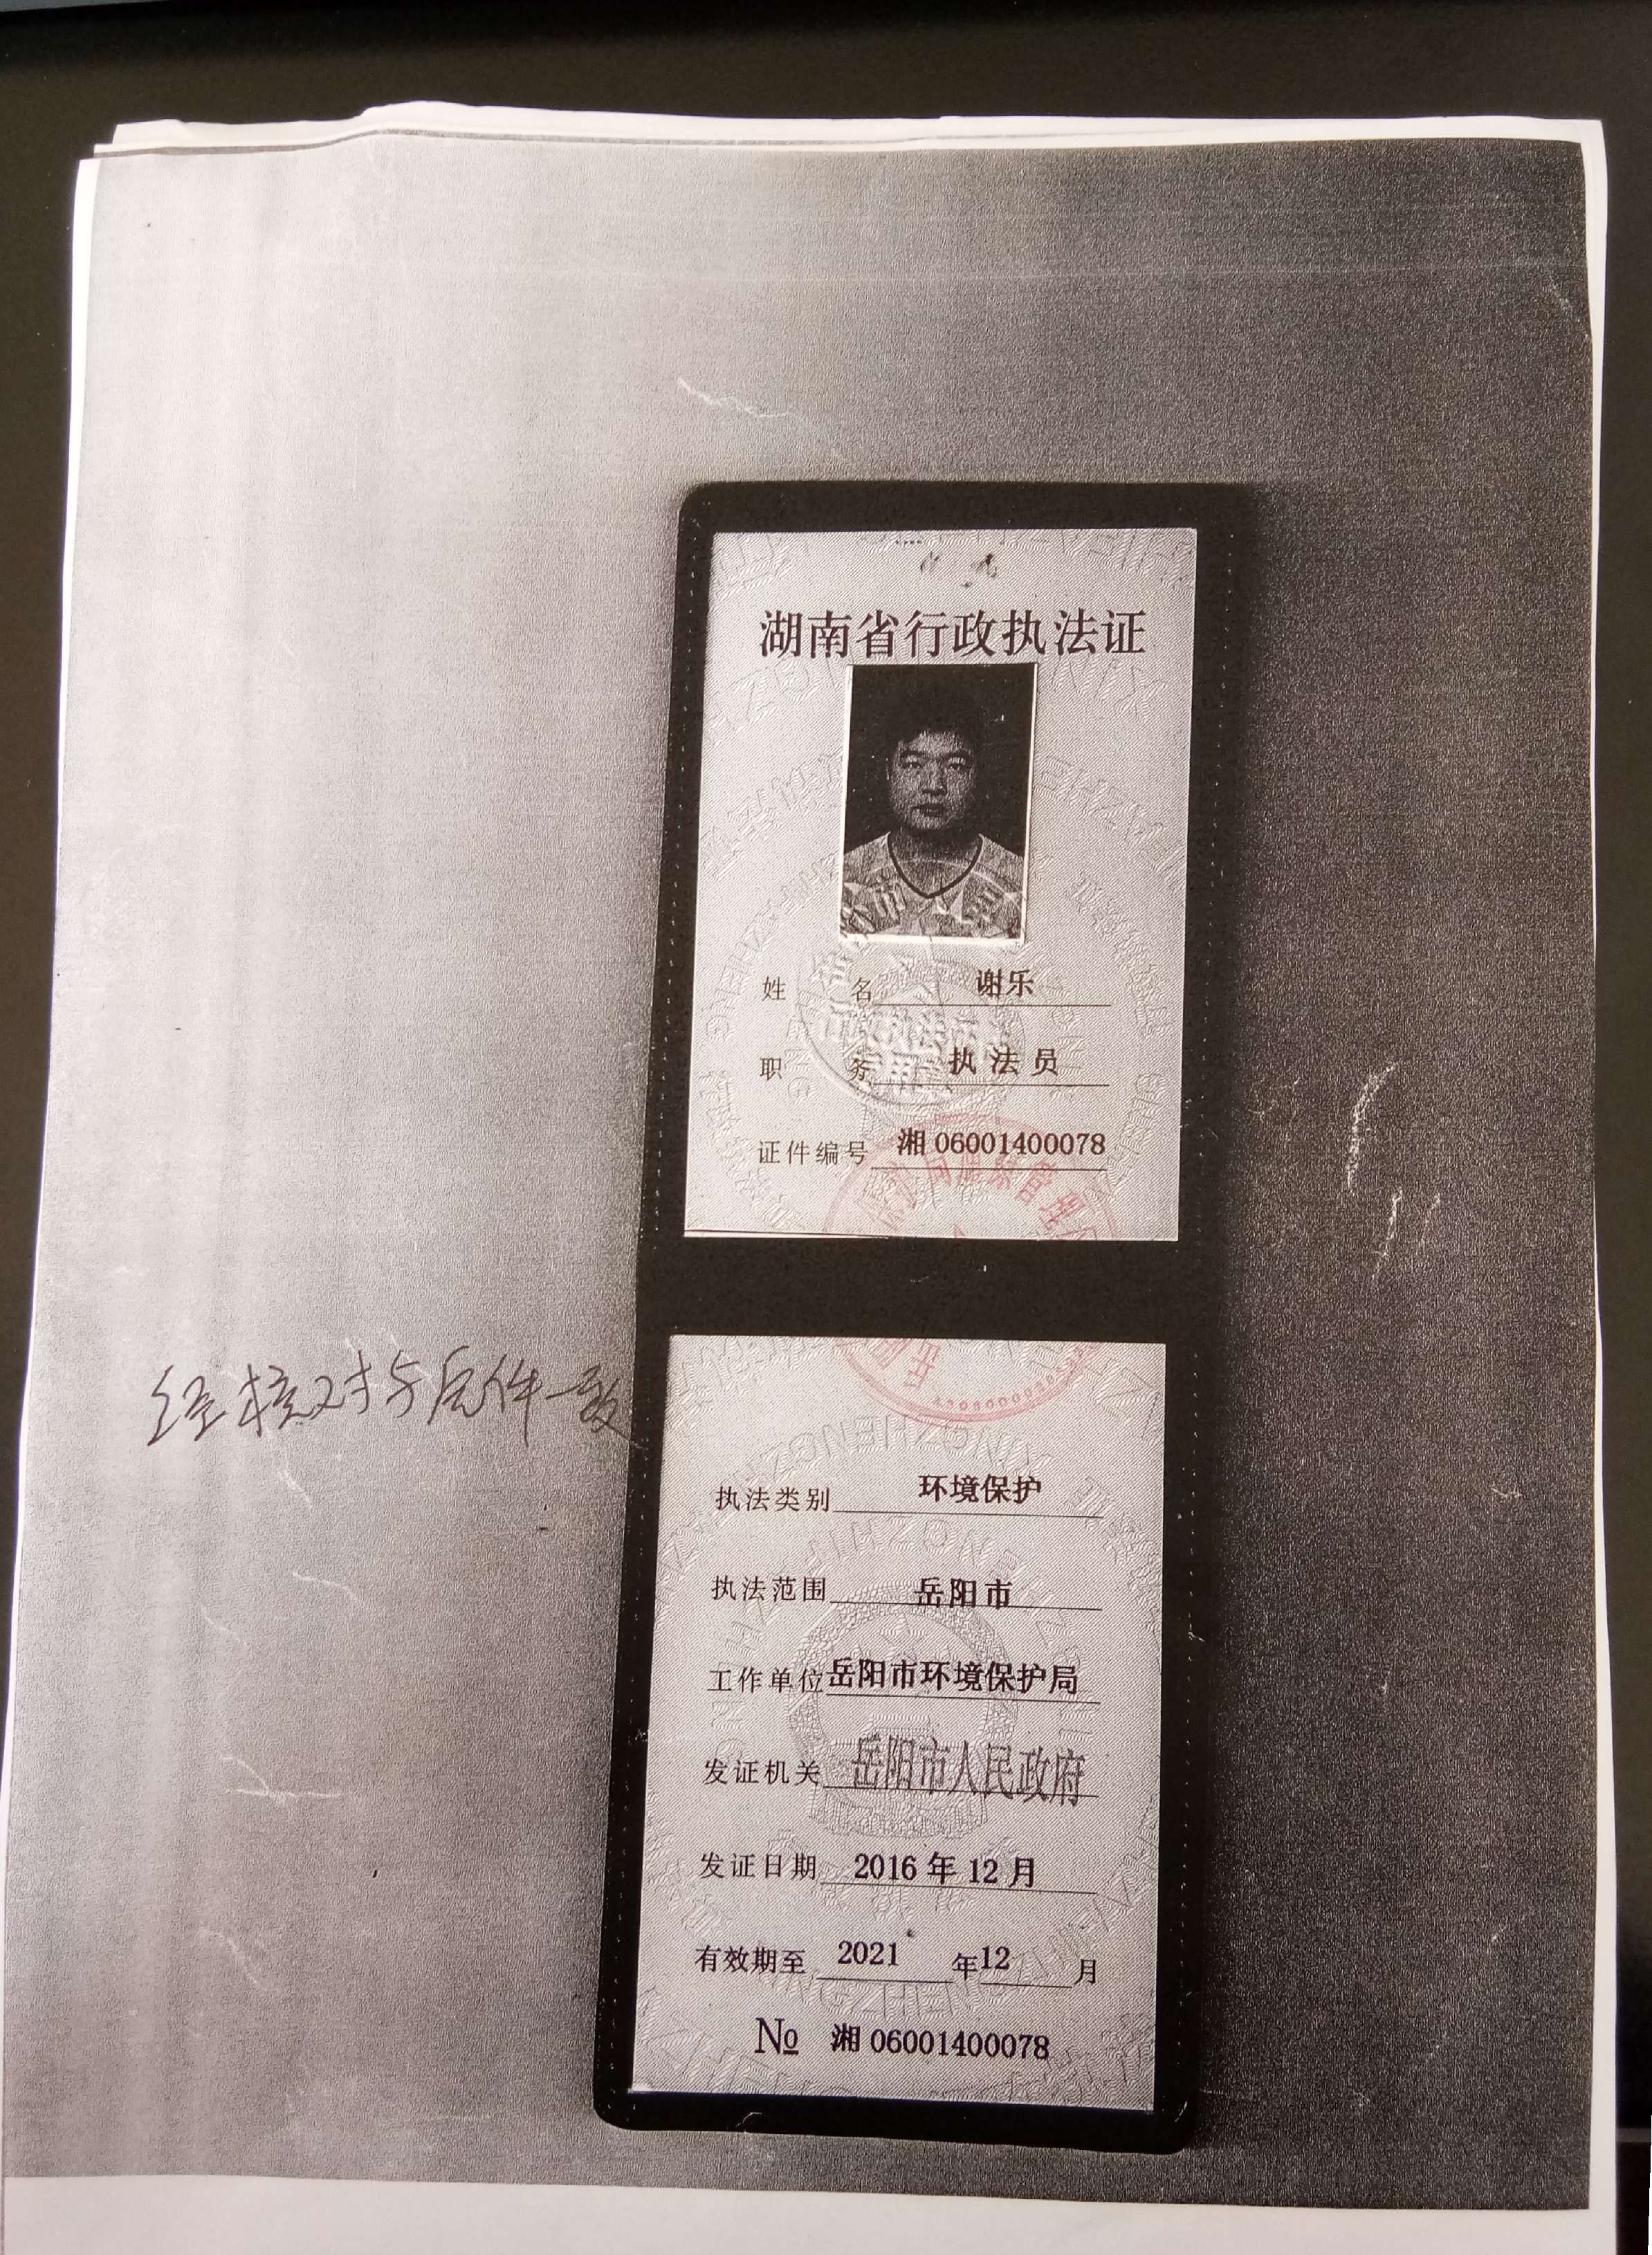 湖南省行政执法证
姓名 谢乐
职务 执法员
证件编号 湘06001400078
经核对与原件一致
执法类别 环境保护
执法范围 岳阳市
工作单位 岳阳市环境保护局
发证机关 岳阳市人民政府
发证日期 2016年12月
有效期至 2021年12月
№ 湘06001400078